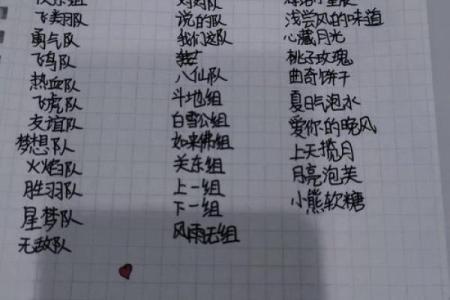 勇气队
飞鸟队
热血队
飞虎队
友谊队
梦想队
火焰队
胜羽队
星梦队
无敌队
说的队
我们这队
八仙队
斗地组
白雪公组
如来佛组
关东组
上一组
下一组
风雨无组
浅尝风的味道
心藏月光
桃子玫瑰
曲奇饼干
夏日气泡水
爱你的晚风
上天揽月
月亮泡芙
小熊软糖